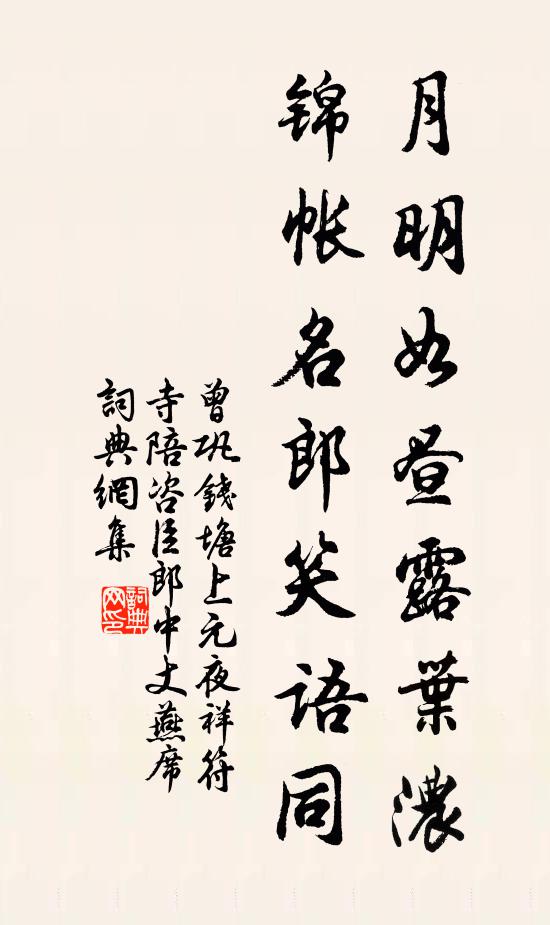 月明如昼露葉濃
錦帐名郎笑語同
曾巩錢塘上元夜祥符
寺陪咨臣郎中丈燕席
詞典網集
詞典
网印